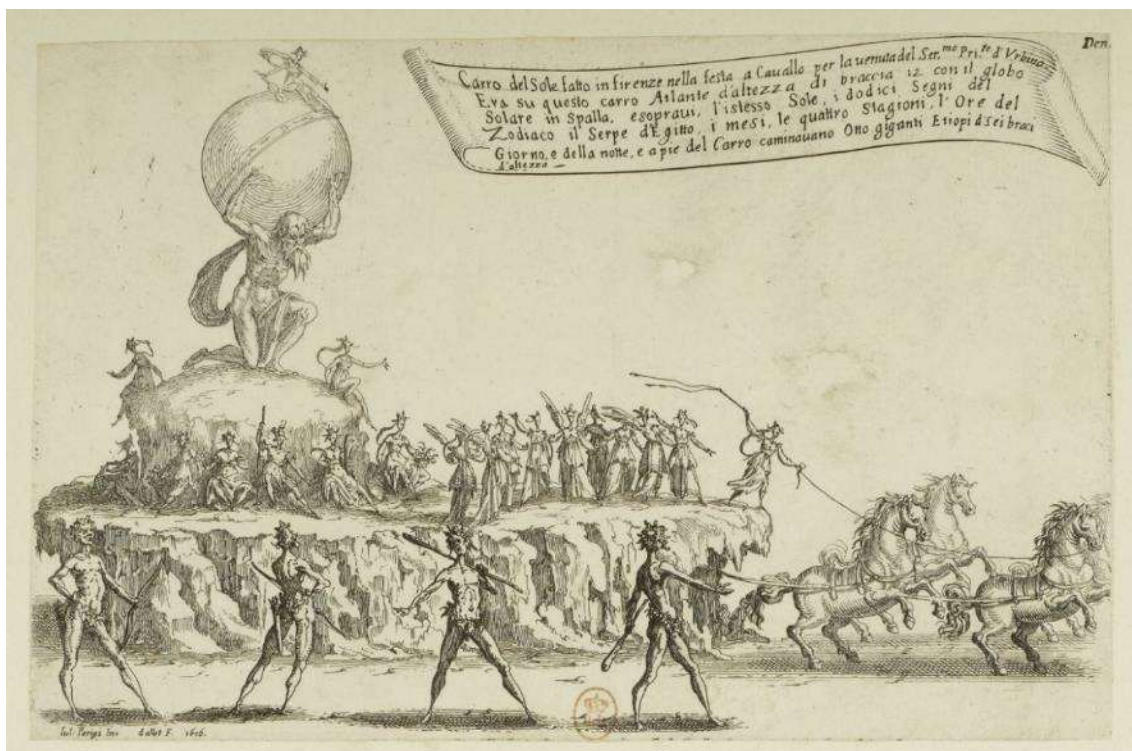 Carro del Sole fatto in firenze nella festa a Cauallo per la uenuta del Ser.mo Pri.pe d'Vrbino
Eva su questo carro Atlante d'altezza di braccia 12 con il globo
Solare in Spalla, esoprauj, l'istesso Sole, i dodici Segni del
Zodiaco il Serpe d'Egitto, i mesi, le quattro Stagioni, l'Ore del
Giorno, e della notte, e a pie del Carro caminauano Otto giganti Etiopi d Sei braci
d'altezza
Den.
Iul. Parigi Inv. Callot F. 1616.